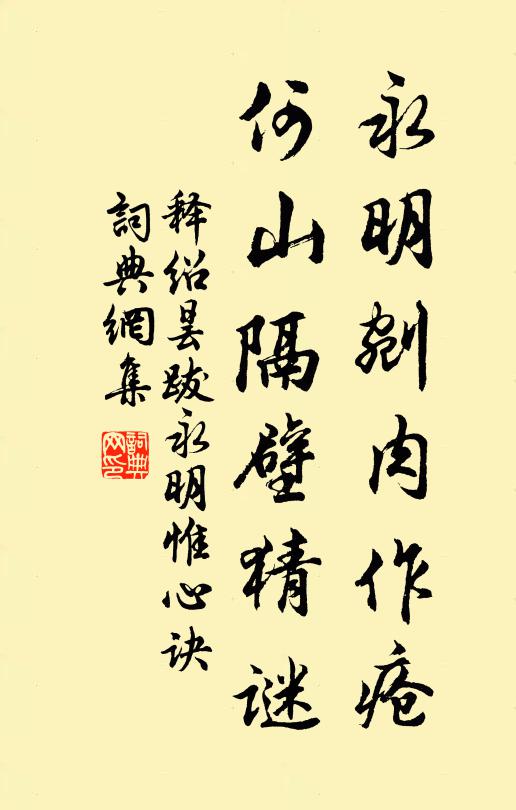 永明剜肉作疮
何山隔壁猜谜
释绍昙跋永明惟心诀
詞典網集
詞典网印